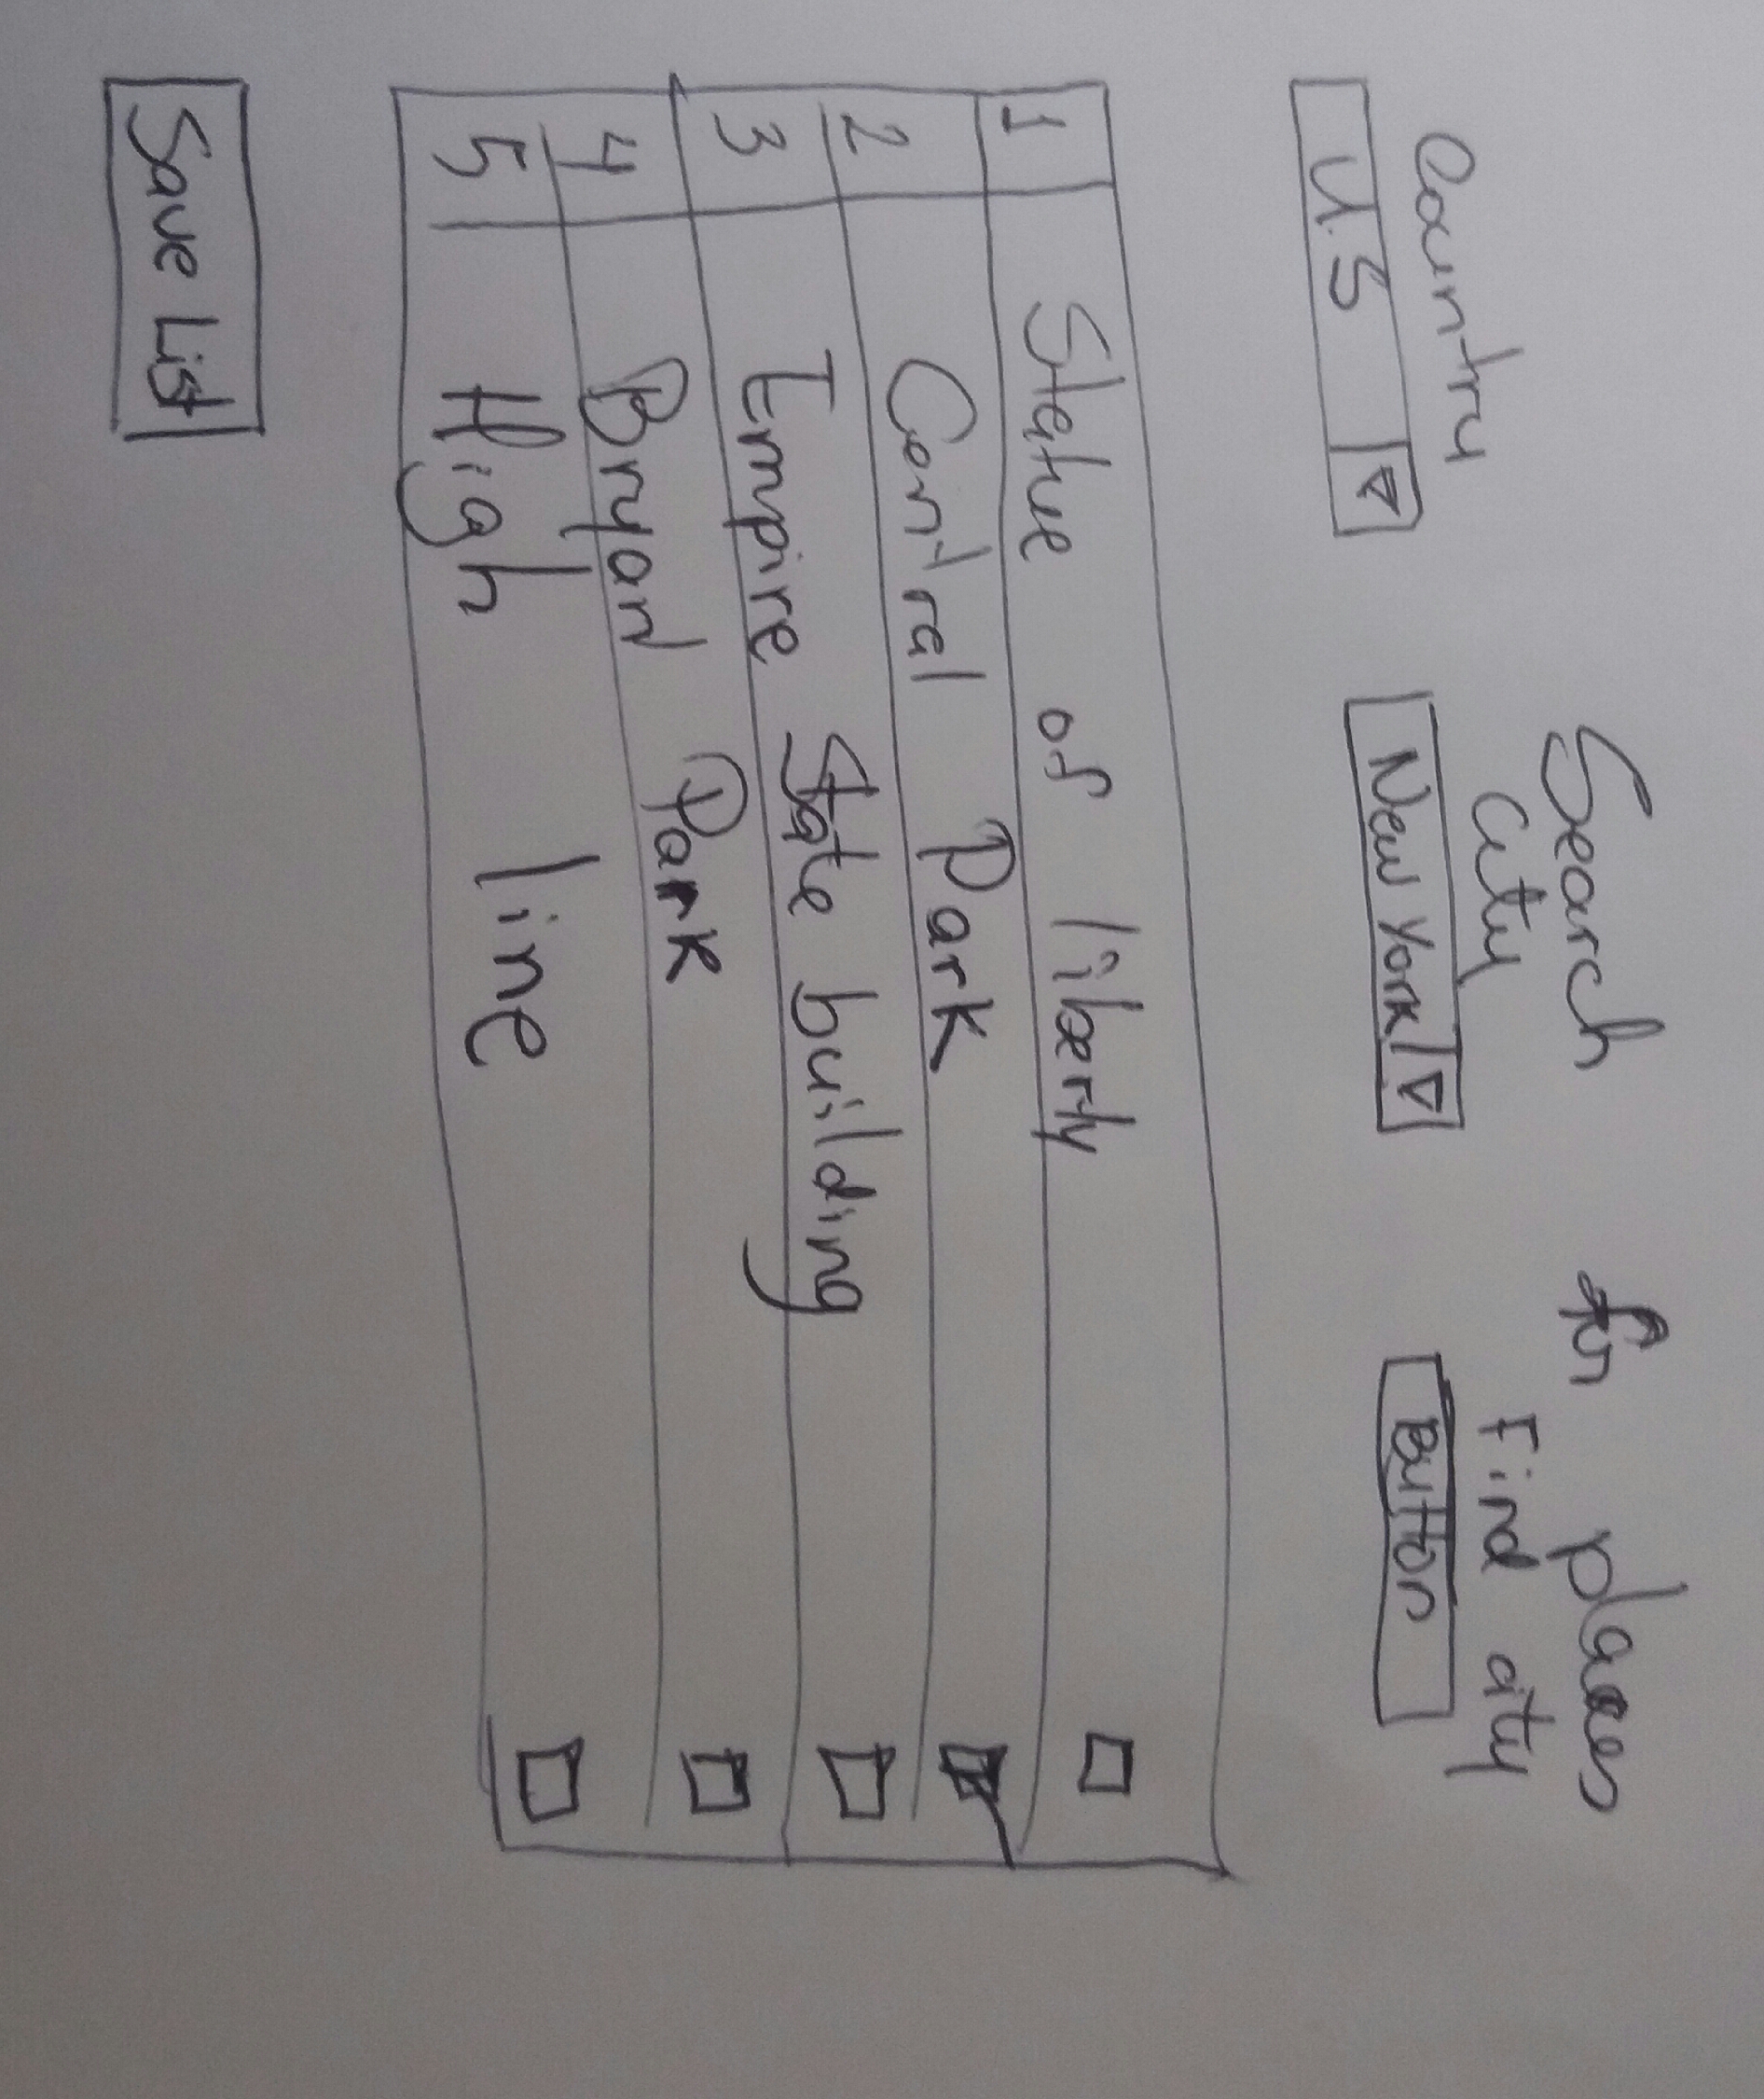 Search for places
Country City Find city
U.S New York Button
1 Statue of liberty
2 Central Park
3 Empire State building
4 Bryan Park
5 High line
Save List